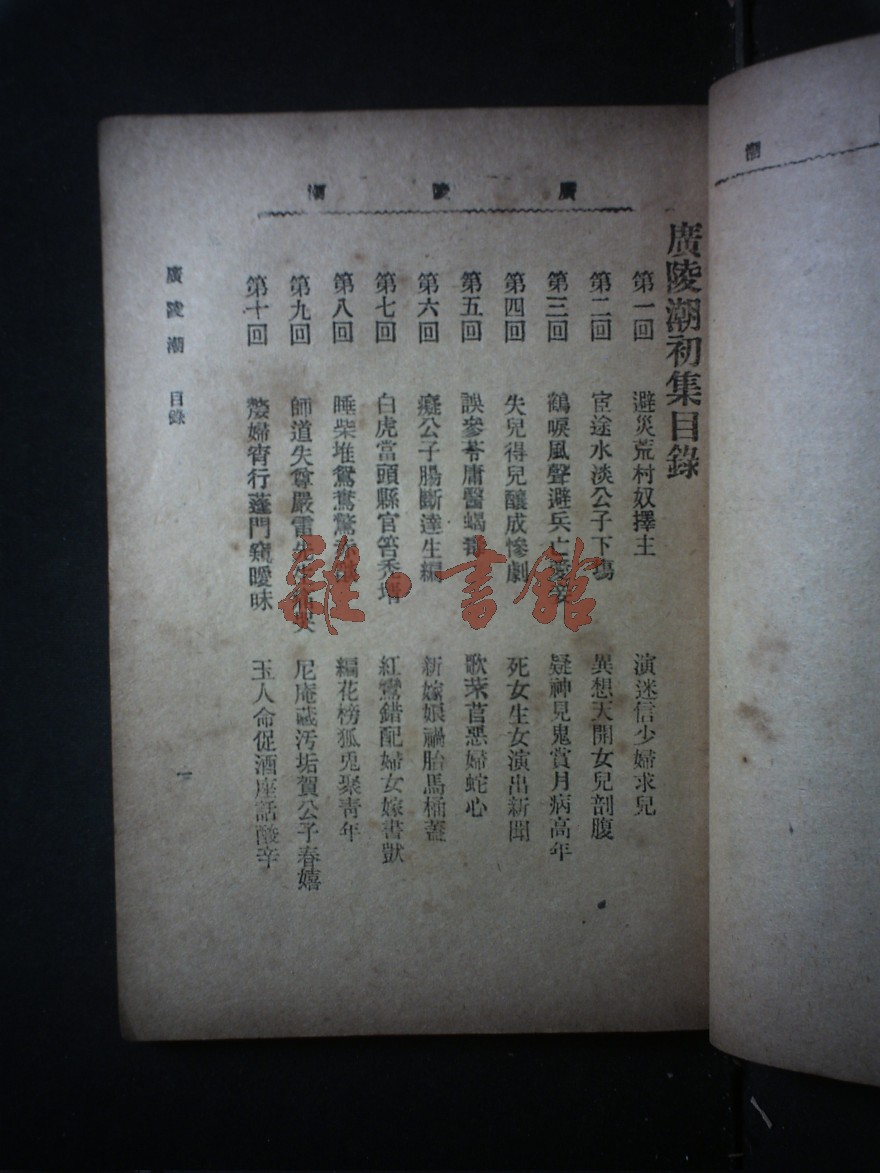 廣陵潮
廣陵潮初集目錄
第一回 避災荒村奴擇主 演迷信少婦求兒
第二回 宦途水淡公子下塲 異想天開女兒剖腹
第三回 鶴唳風聲避兵亡 疑神見鬼賞月病高年
第四回 失兒得兒釀成慘劇 死女生女演出新聞
第五回 誤參苓庸醫蝎毒 歌芣苢惡婦蛇心
第六回 癡公子腸斷達生編 新嫁娘禍胎馬桶蓋
第七回 白虎當頭縣官笞秃壻 紅鸞錯配婦女嫁書獃
第八回 睡柴堆鴛鴦驚 編花榜狐兎聚靑年
第九回 師道失尊嚴雷先生 尼庵藏汚垢賀公子春嬉
第十回 嫠婦宵行蓬門窺曖昧 玉人命促酒座話酸辛
廣陵潮 目錄
一
潮
雜·書館